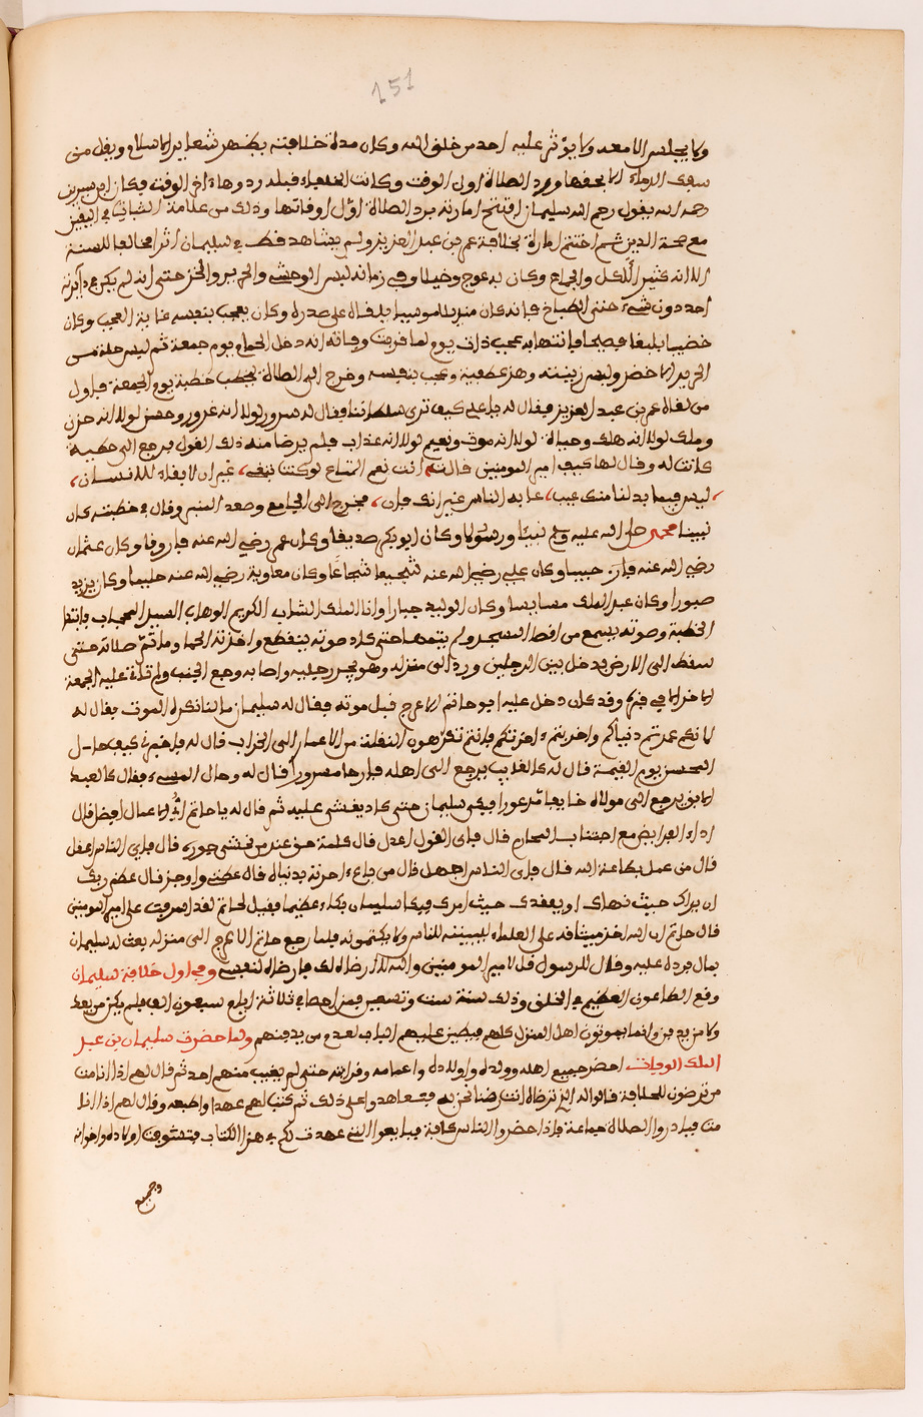 151
ولا يجلس الا معه ولا يؤثر عليه احد من خلق الله وكان مدة خلافته يظهر شعاير الاسلام ويقل من
سفك الدماء الا بحقها ويرد الصلاة اول الوقت وكانت الخلفاء قبله ردوها ءاخر الوقت فكان ابن سيرين
رحمه الله يقول رحم الله سليمان افتتح امارته برد الصلاة اول اوقاتها وذلك من علامة الثبات في اليقين
مع صحة الدين ثم اختتم امارة بخلافة عمر بن عبد العزيز ولم يشاهد قط في سليمان اثر مخالفا للسنة
الا انه كثير الاكل والجماع وكان به عوج وخيلا وفي زمانه لبس الوشي والحرير والخز حتى انه لم يكن في دايرته
احد دون شيء حتى الطباخ فانه كان منه بلاموسيا يلقاه على صدره وكان يعجب بنفسه غاية العجب وكان
خصيبا بليغا فصيحا فانتها به عجب ذات يوم لما قربت وفاته انه دخل الحمام يوم جمعة ثم لبس حلة من
الحرير الاخضر ولبس زينته وهز عطفيه وعجب بنفسه وخرج الى الصلاة يخطب خطبة يوم الجمعة فاول
من لقاه عمر بن عبد العزيز فقال له يا علي كيف ترى سلطاننا فقال له سرور لولا انه غرور وحسن لولا انه حزن
وملك لولا انه هلك وحياة لولا انه موت ونعيم لولا انه عذاب فلم يرضا منه ذلك القول فرجع الى حظية
كانت له وقال لها كيف امير المومنين قالت انت نعم المتاع لو كنت تبقى، غير ان لا بقاء للانسان،
، ليس فيما بدا لنا منك عيب، عابه الناس غير انك فان، فخرج الى الجامع وصعد المنبر وقال في خطبته كان
نبينا محمد صلى الله عليه وسلم نبيئا ورسولا وكان ابو بكر صديقا وكان عمر رضي الله عنه فاروقا وكان عثمان
رضي الله عنه حييا وكان علي رضي الله عنه شجيعا شجاعا وكان معاوية رضي الله عنه حليما وكان يزيد
صبورا وكان عبد الملك سايسا وكان الوليد جبارا وانا الملك الشاب الكريم الوهاب السيد المهاب فابتدا
الخطبة وصوته يسمع من اقصا المسجد ولم يتمها حتى كاد صوته ينقطع واخذته الحما وما تم صلاته حتى
سقط الى الارض فدخل بين الرجلين ورد الى منزله وهو يجر رجليه واصابه وجع الجنب ولم تات عليه الجمعة
الاخرا الا في قبره وقد كان دخل عليه ابو حاتم الاعرج قبل موته فقال له سليمان ما لنا نكره الموت فقال له
لانكم عمرتم دنياكم واخربتم ءاخرتكم فانتم تكرهون النقلة من الاعمار الى الخراب قال له فاخبرني كيف حال
المحسن يوم القيمة قال له كالغايب يرجع الى اهله فارحا مسرورا قال له وحال المسيء فقال كالعبد
الابق يرجع الى مولاه خايفا مذعورا فبكى سليمان حتى كاد يغشى عليه ثم قال له يا حاتم اي الاعمال افضل قال
اداء الفرايض مع اجتناب المحارم قال فاي القول اعدل قال كلمة حق عند من تخشى جوره قال فاي الناس اعقل
قال من عمل بطاعة الله قال فاي الناس اجهل قال من باع ءاخرته بدنياه قال عظني واوجز قال عظم ربك
ان يراك حيث نهاك او يفقدك حيث امرك فبكا سليمان بكاء عظيما فقيل لحاتم لقد اسرفت على امير المومنين
قال حاتم ان الله اخذ ميثاقه على العلماء ليبيننه للناس ولا يكتمونه فلما رجع حاتم الاعرج الى منزله بعث له سليمان
بمال فرده عليه وقال للرسول قل لامير المومنين والله لا ارضاه لك فارضاه لنفسي وفي اول خلافة سليمان
وقع الطاعون العظيم في الخلق وذلك سنة ست وتسعين فمن احصا في ثلاثة ايام سبعون الف فلم يكن من يعد
ولا من يدفن وانما يموتون اهل المنزل كلهم فيطين عليهم الباب لعدم من يدفنهم ولما حضرت سليمان بن عبد
الملك الوفات احضر جميع اهله وولده واولاده واعمامه وقرابته حتى لم يغيب منهم احد ثم قال لهم اذا انا مت
من ترضون للخلافة قالوا له الذي ترضاه انت رضا نحن به فتعاهدوا على ذلك ثم كتب لهم عهدا واطبعه وقال لهم اذا انا
مت فبادروا الصلاة جماعة فاذا حضروا الناس كافة فبايعوا الذي عهدت لكم في هذا الكتاب فتشوفت اولاده واخوانه
وجميع